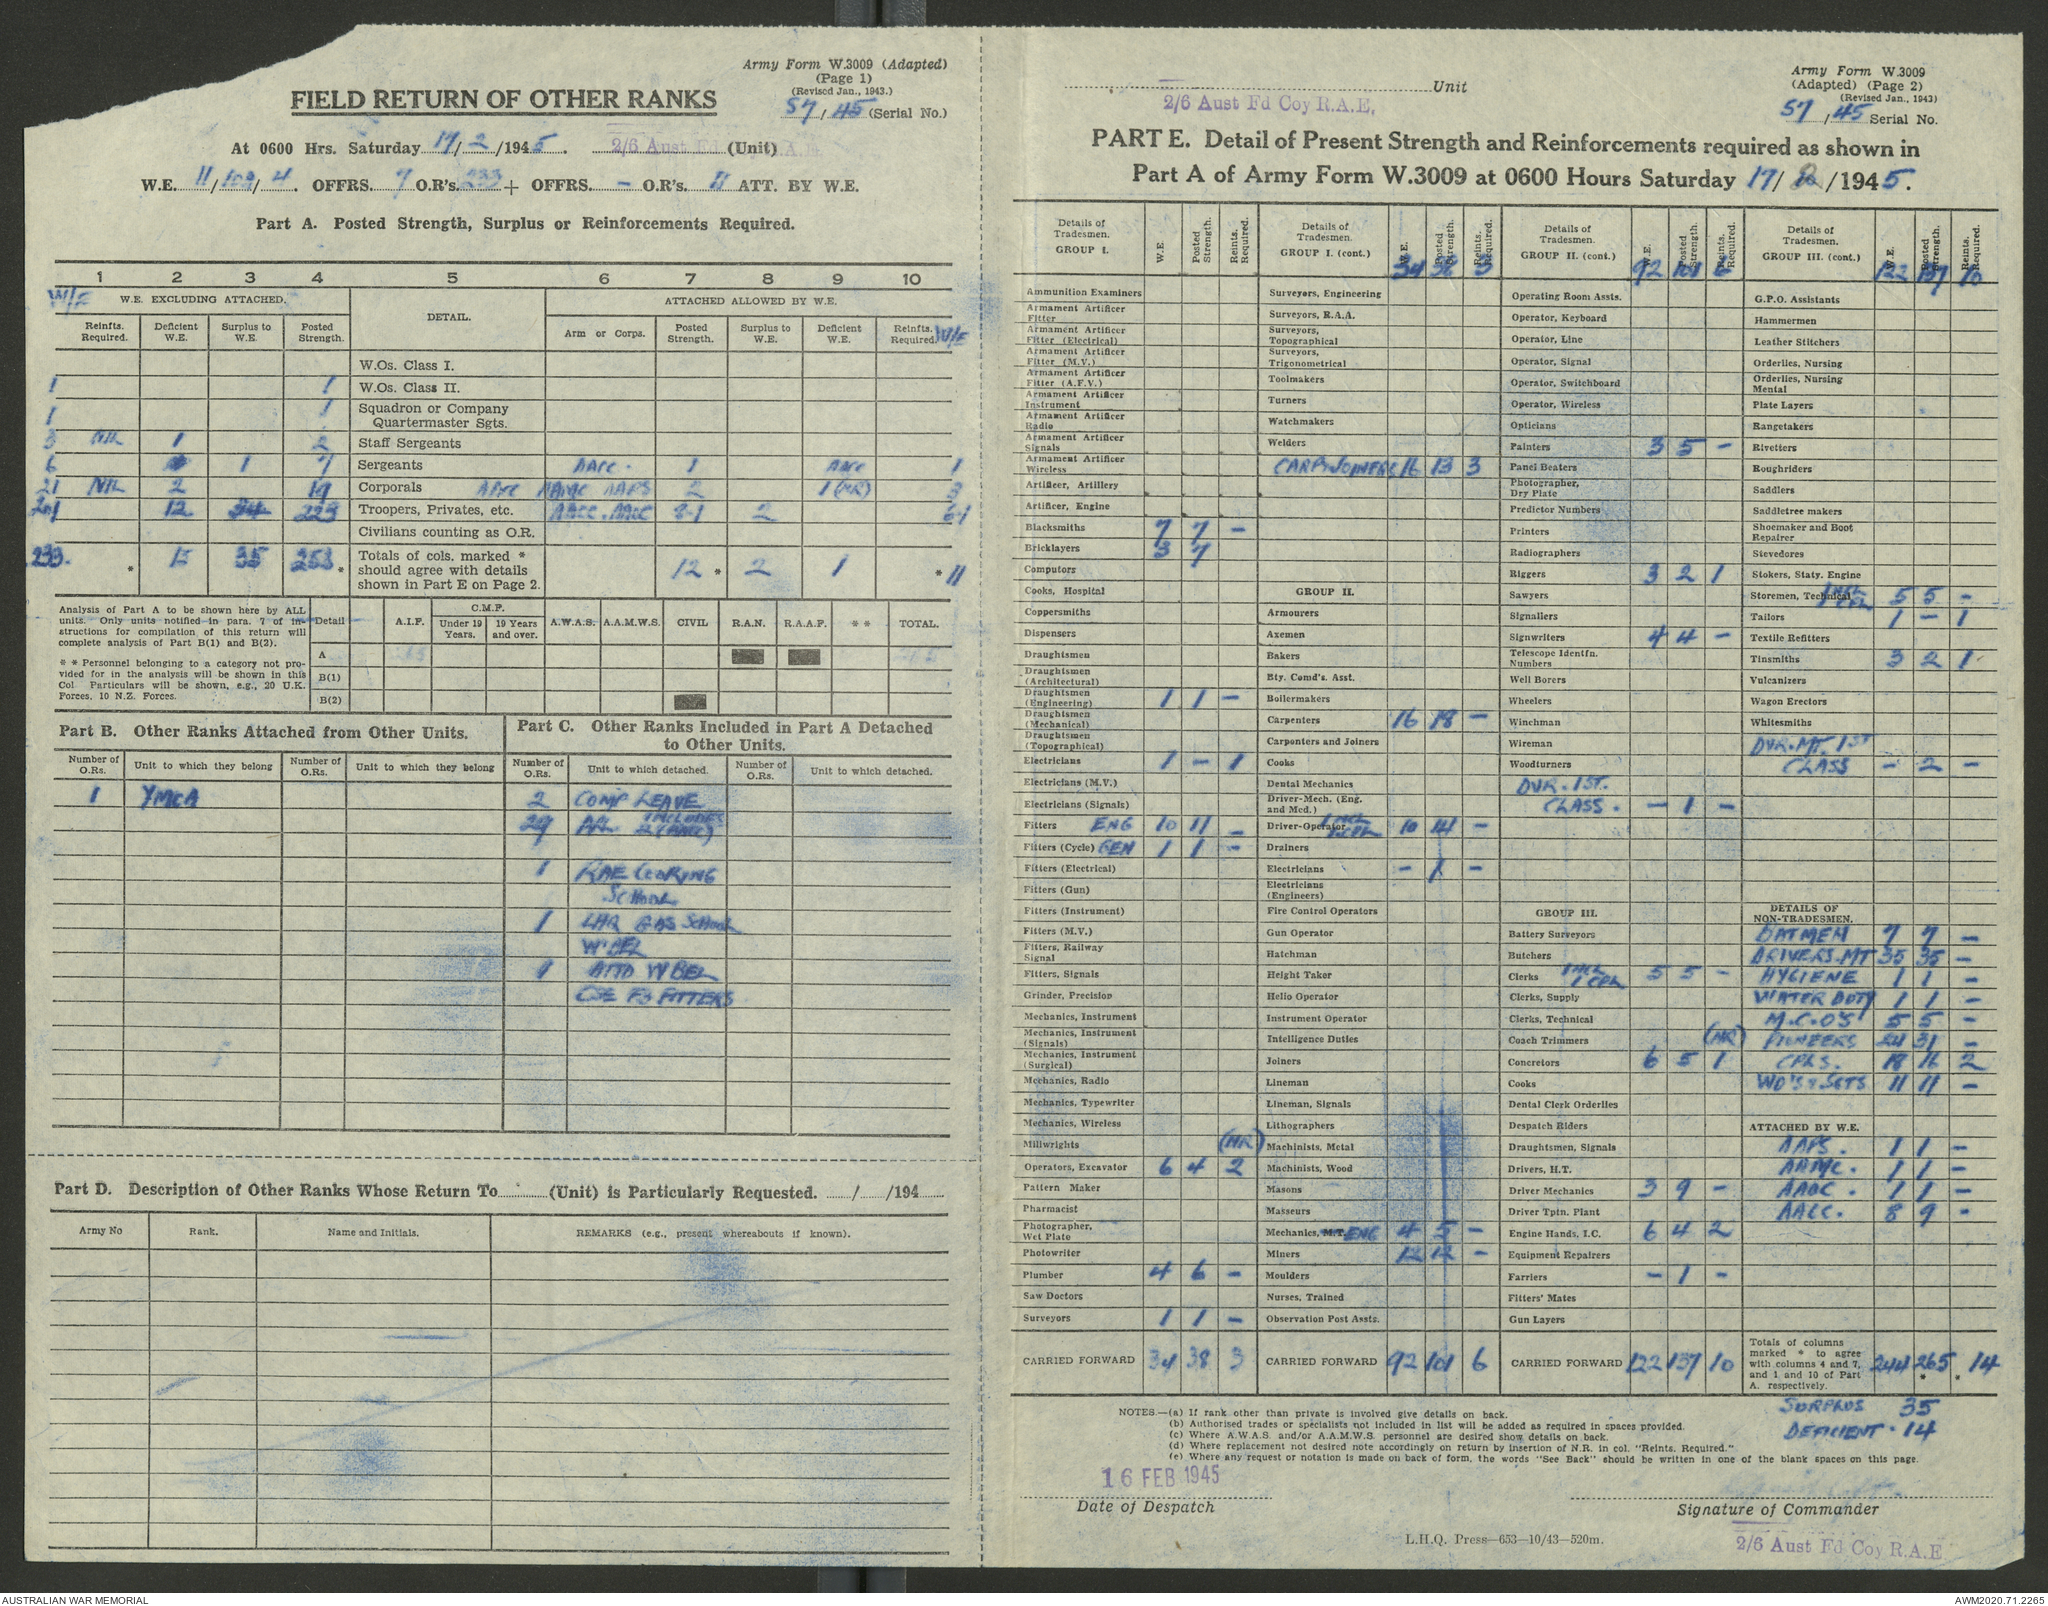 Army Form W.3009 (Adapted)
(Page 1)
(Revised Jan., 1943.)
57/45 (Serial No.)
FIELD RETURN OF OTHER RANKS
At 0600 Hrs. Saturday 17/2/1945. 2/6 Aust Fd (Unit)
W.E. 11/109/4. OFFRS. 7 O.R's. 233 + OFFRS. – O.R's. 11 ATT. BY W.E.
Part A. Posted Strength, Surplus or Reinforcements Required.
1 2 3 4 5 6 7 8 9 10
W/E W.E. EXCLUDING ATTACHED. DETAIL. ATTACHED ALLOWED BY W.E.
Reinfts. Required. Deficient W.E. Surplus to W.E. Posted Strength. Arm or Corps. Posted Strength. Surplus to W.E. Deficient W.E. Reinfts. Required. W/E
W.Os. Class I.
1 1 W.Os. Class II.
1 1 Squadron or Company Quartermaster Sgts.
3 NIL 1 2 Staff Sergeants
6 1 7 Sergeants AACC. 1 AACC 1
21 NIL 2 19 Corporals AAMC AAPS 2 1 (NR) 3
12 34 223 Troopers, Privates, etc. AACC. 2
Civilians counting as O.R.
233. * 15 35 253 * Totals of cols. marked * should agree with details shown in Part E on Page 2. 12 * 2 1 * 11
Analysis of Part A to be shown here by ALL units. Only units notified in para. 7 of instructions for compilation of this return will complete analysis of Part B(1) and B(2).
* * Personnel belonging to a category not provided for in the analysis will be shown in this Col. Particulars will be shown, e.g., 20 U.K. Forces, 10 N.Z. Forces.
Detail A.I.F. C.M.F. Under 19 Years. 19 Years and over. A.W.A.S. A.A.M.W.S. CIVIL R.A.N. R.A.A.F. * * TOTAL.
A
B(1)
B(2)
Part B. Other Ranks Attached from Other Units.
Part C. Other Ranks Included in Part A Detached to Other Units.
Number of O.Rs. Unit to which they belong Number of O.Rs. Unit to which they belong Number of O.Rs. Unit to which detached. Number of O.Rs. Unit to which detached.
1 YMCA 2 COMP LEAVE
29 INCLUDES 2 (AACC)
1 RAE COOKING
SCHOOL
1 LHQ GAS SCHOOL
W'BEL
1 W'BEL
CSE F3 FITTERS
Part D. Description of Other Ranks Whose Return To (Unit) is Particularly Requested. / /194
Army No Rank. Name and Initials. REMARKS (e.g., present whereabouts if known).
Unit
2/6 Aust Fd Coy R.A.E.
Army Form W.3009
(Adapted) (Page 2)
(Revised Jan., 1943)
57/45 Serial No.
PART E. Detail of Present Strength and Reinforcements required as shown in
Part A of Army Form W.3009 at 0600 Hours Saturday 17/2/1945.
Details of Tradesmen. GROUP I. W.E. Posted Strength. Reints. Required.
Ammunition Examiners
Armament Artificer Fitter
Armament Artificer Fitter (Electrical)
Armament Artificer Fitter (M.V.)
Armament Artificer Fitter (A.F.V.)
Armament Artificer Instrument
Armament Artificer Radio
Armament Artificer Signals
Armament Artificer Wireless
Artificer, Artillery
Artificer, Engine
Blacksmiths 7 7 –
Bricklayers 3 7
Computors
Cooks, Hospital
Coppersmiths
Dispensers
Draughtsmen
Draughtsmen (Architectural)
Draughtsmen (Engineering) 1 1 –
Draughtsmen (Mechanical)
Draughtsmen (Topographical)
Electricians 1 – 1
Electricians (M.V.)
Electricians (Signals)
Fitters ENG 10 11 –
Fitters (Cycle) GEN 1 1 –
Fitters (Electrical)
Fitters (Gun)
Fitters (Instrument)
Fitters (M.V.)
Fitters, Railway Signal
Fitters, Signals
Grinder, Precision
Mechanics, Instrument
Mechanics, Instrument (Signals)
Mechanics, Instrument (Surgical)
Mechanics, Radio
Mechanics, Typewriter
Mechanics, Wireless
Millwrights (NR)
Operators, Excavator 6 4 2
Pattern Maker
Pharmacist
Photographer, Wet Plate
Photowriter
Plumber 4 6 –
Saw Doctors
Surveyors 1 1 –
CARRIED FORWARD 34 38 3
Details of Tradesmen. GROUP I. (cont.) W.E. Posted Strength. Reints. Required. 34 38 3
Surveyors, Engineering
Surveyors, R.A.A.
Surveyors, Topographical
Surveyors, Trigonometrical
Toolmakers
Turners
Watchmakers
Welders
CARP & JOINERS 16 13 3
GROUP II.
Armourers
Axemen
Bakers
Bty. Comd's. Asst.
Boilermakers
Carpenters 16 18 –
Carpenters and Joiners
Cooks
Dental Mechanics
Driver-Mech. (Eng. and Med.)
Driver-Operator INCL 1 CPL 10 14 –
Drainers
Electricians – 1 –
Electricians (Engineers)
Fire Control Operators
Gun Operator
Hatchman
Height Taker
Helio Operator
Instrument Operator
Intelligence Duties
Joiners
Lineman
Lineman, Signals
Lithographers
Machinists, Metal
Machinists, Wood
Masons
Masseurs
Mechanics, M.T. ENG 4 5 –
Miners 12 12 –
Moulders
Nurses, Trained
Observation Post Assts.
CARRIED FORWARD 92 101 6
Details of Tradesmen. GROUP II. (cont.) W.E. Posted Strength. Reints. Required. 92 101 6
Operating Room Assts.
Operator, Keyboard
Operator, Line
Operator, Signal
Operator, Switchboard
Operator, Wireless
Opticians
Painters 3 5 –
Panel Beaters
Photographer, Dry Plate
Predictor Numbers
Printers
Radiographers
Riggers 3 2 1
Sawyers
Signallers
Signwriters 4 4 –
Telescope Identfn. Numbers
Well Borers
Wheelers
Winchman
Wireman
Woodturners
DVR. 1ST.
CLASS. – 1 –
GROUP III.
Battery Surveyors
Butchers
Clerks INCL 1 CPL 5 5 –
Clerks, Supply
Clerks, Technical
Coach Trimmers (NR)
Concretors 6 5 1
Cooks
Dental Clerk Orderlies
Despatch Riders
Draughtsmen, Signals
Drivers, H.T.
Driver Mechanics 3 9 –
Driver Tptn. Plant
Engine Hands, I.C. 6 4 2
Equipment Repairers
Farriers – 1 –
Fitters' Mates
Gun Layers
CARRIED FORWARD 122 137 10
Details of Tradesmen. GROUP III. (cont.) W.E. Posted Strength. Reints. Required. 122 137 10
G.P.O. Assistants
Hammermen
Leather Stitchers
Orderlies, Nursing
Orderlies, Nursing Mental
Plate Layers
Rangetakers
Rivetters
Roughriders
Saddlers
Saddletree makers
Shoemaker and Boot Repairer
Stevedores
Stokers, Staty. Engine
Storemen, Technical INCL 1 CPL 5 5 –
Tailors 1 – 1
Textile Refitters
Tinsmiths 3 2 1
Vulcanizers
Wagon Erectors
Whitesmiths
DVR. MT. 1ST
CLASS – 2 –
DETAILS OF NON-TRADESMEN.
BATMEN 7 7 –
DRIVERS. MT 35 35 –
HYGIENE 1 1 –
WATER DUTY 1 1 –
N.C.O'S 5 5 –
PIONEERS 24 31 –
CPLS. 18 16 2
WO'S & SGTS 11 11 –
ATTACHED BY W.E.
AAPS. 1 1 –
AAMC. 1 1 –
AAOC. 1 1 –
AACC. 8 9 –
Totals of columns marked * to agree with columns 4 and 7, and 1 and 10 of Part A. respectively. 244 265 * 14 *
SURPLUS 35
DEFICIENT. 14
NOTES.—(a) If rank other than private is involved give details on back.
(b) Authorised trades or specialists not included in list will be added as required in spaces provided.
(c) Where A.W.A.S. and/or A.A.M.W.S. personnel are desired show details on back.
(d) Where replacement not desired note accordingly on return by insertion of N.R. in col. "Reints. Required."
(e) Where any request or notation is made on back of form, the words "See Back" should be written in one of the blank spaces on this page.
16 FEB 1945
Date of Despatch
Signature of Commander
L.H.Q. Press—653—10/43—520m.
2/6 Aust Fd Coy R.A.E
AUSTRALIAN WAR MEMORIAL
AWM2020.71.2265